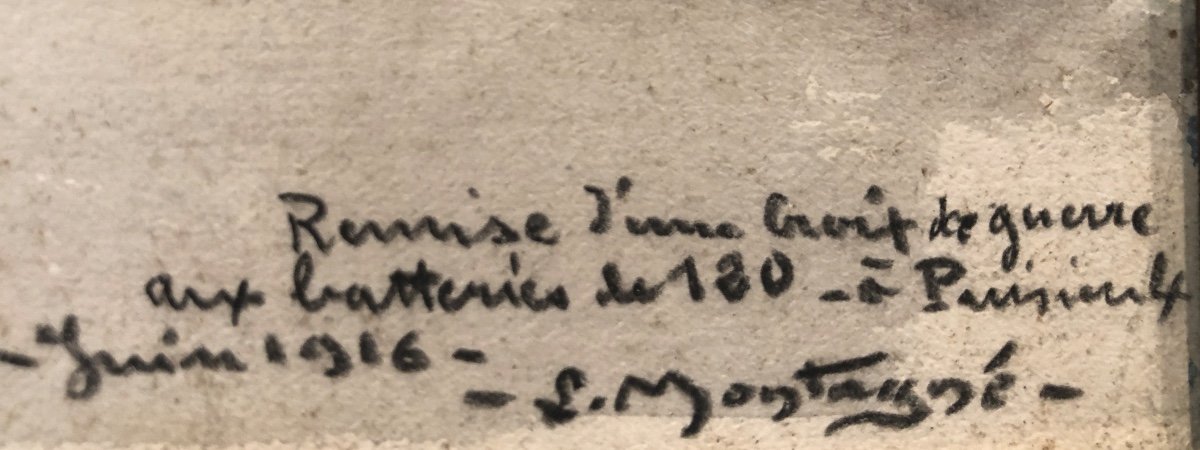 Remise d'une Croix de guerre
aux batteries de 120 - à Puisieulx
- Juin 1916 -
- L. Montagné -